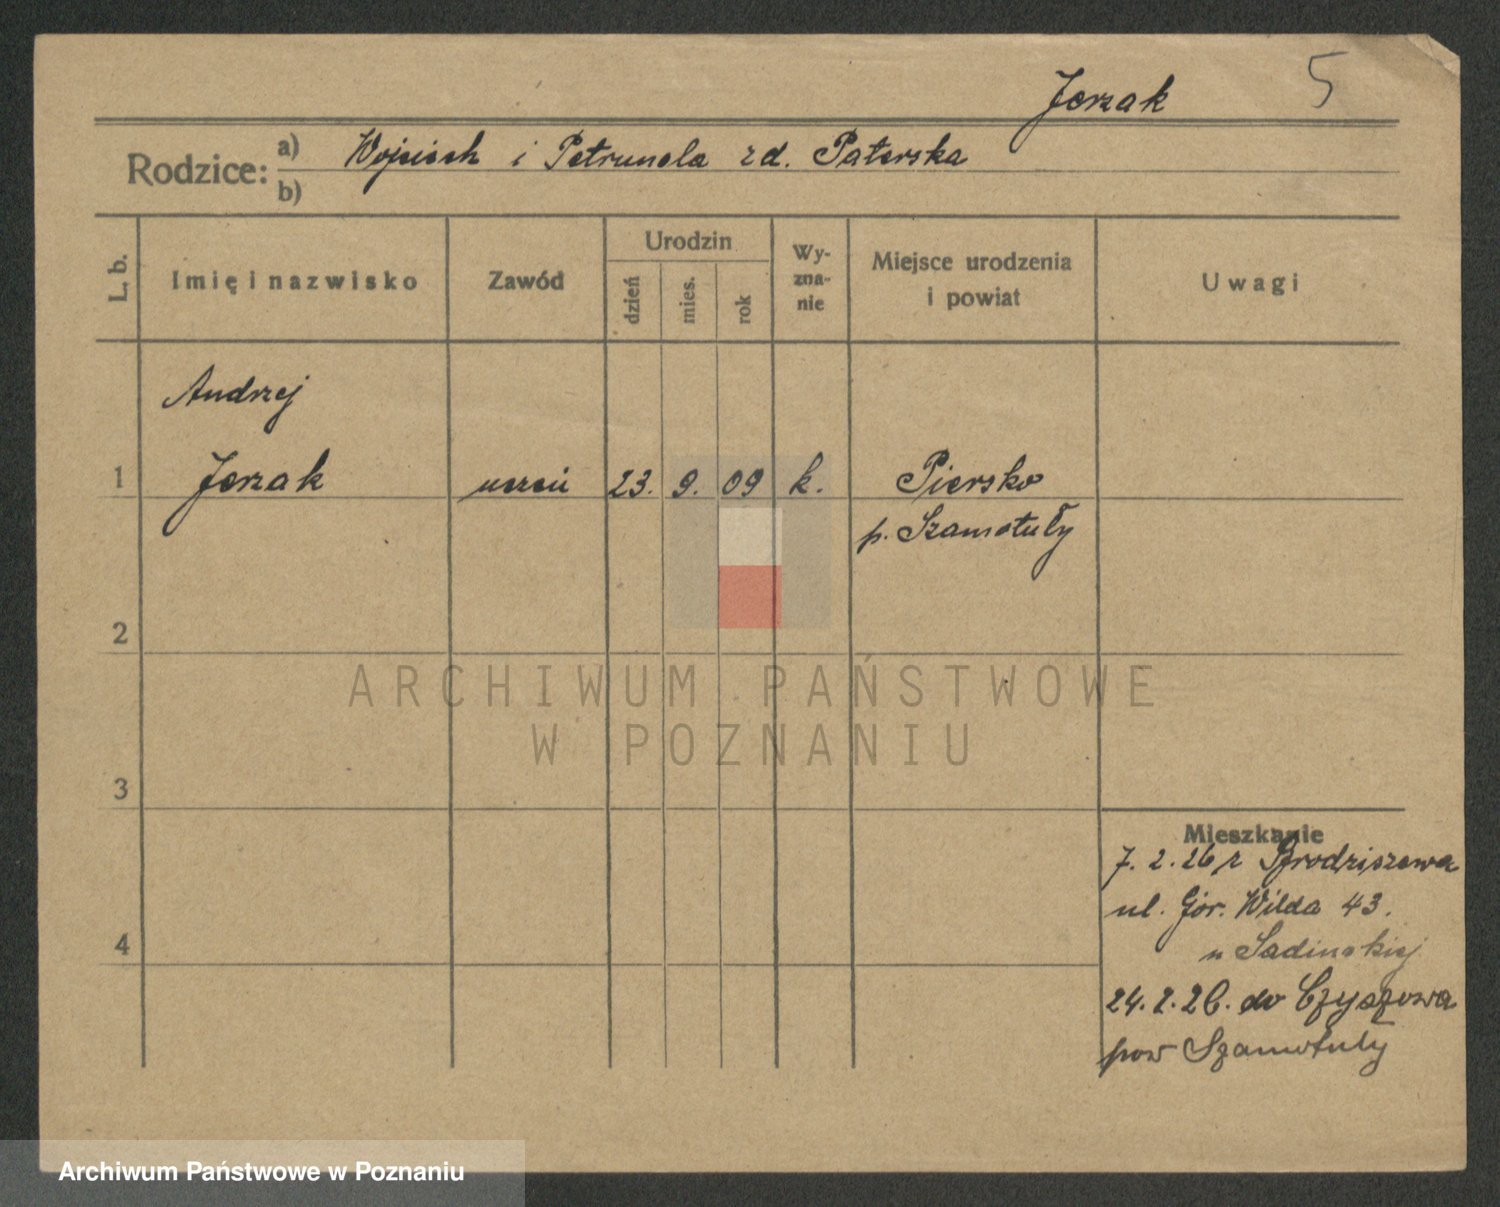 Jerzak 5
Rodzice: a) Wojciech i Petrunela zd. Paterska
b)
L. b.
Imię i nazwisko
Zawód
Urodzin
dzień
mies.
rok
Wy-
zna-
nie
Miejsce urodzenia
i powiat
Uwagi
Andrzej
1 Jerzak uczeń 23. 9. 09 k. Piersko
p. Szamotuły
2
ARCHIWUM PAŃSTWOWE
W POZNANIU
3
Mieszkanie
7. 2. 26 z Grodziszewa
ul. Gór. Wilda 43.
4
u Sadinskiej
24. 2. 26. do Czyszowa
pow Szamotuły
Archiwum Państwowe w Poznaniu